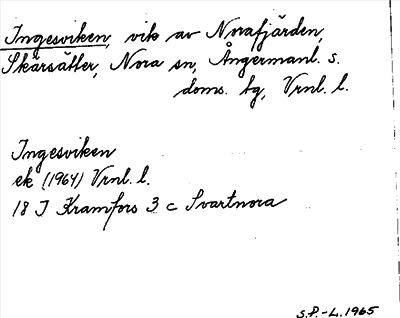 Ingesviken, vik av Norafjärden,
Skärsätter, Nora sn, Ångermanl. s.
doms. tg, Vrnl. l.
Ingesviken
ek (1964) Vrnl. l.
18 J Kramfors 3 c Svartnora
S.P.-L. 1965